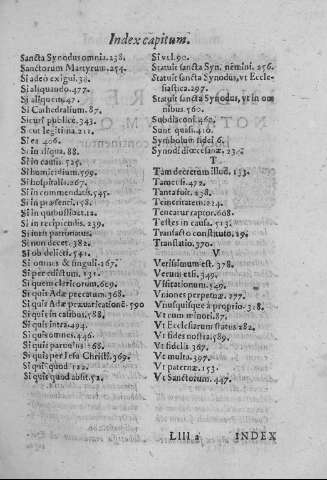 Index capitum.
Sancta Synodus omnia. 238.
Sanctorum Martyrum. 254.
Si adeo exigui. 38.
Si aliquando. 477.
Si aliquem. 47.
Si Cathedralium. 87.
Sicut publice. 343.
Sicut legitima. 211.
Si ea. 406.
Si in aliqua. 88.
Si in causa. 525.
Si homicidium. 599.
Si hospitalis. 267.
Si in commendatis. 545.
Si in præsenti. 158.
Si in quibuslibet. 12.
Si in recipiendis. 239.
Si inter patrinos.
Si non decet. 382.
Si ob delicti. 541.
Si omnes & singuli. 167.
Si per edictum. 131.
Si quem clericorum. 629.
Si quis Adæ peccatum. 368.
Si quis Adæ præuaricationē. 590
Si quis in talibus. 588.
Si quis intra. 494.
Si quis omnes. 446.
Si quis paruulus. 168.
Si quis per Iesu Christi. 369.
Si quis quod. 122.
Si quis quod absit. 52.
Si vel. 90.
Statuit sancta Syn. némini. 256.
Statuit sancta Synodus, vt Eccle-
siastica. 297.
Statuit sancta Synodus, vt in om
nibus. 560.
Subdiaconi. 460.
Sunt quasi. 410.
Symbolum fidei. 6.
Synodi diœcesanæ. 23.
T
Tam decretum illud. 133.
Tametsi. 472.
Tantæ fuit. 238.
Temeritatem. 224.
Teneatur raptor. 608.
Testes in causa. 513.
Transacto constituto. 19.
Translatio. 370.
V
Verissimum est. 378.
Verum etsi. 349.
Visitationum. 549.
Vniones perpetuæ. 277.
Vnusquisque à proprio. 318.
Vt cum minori. 87.
Vt Ecclesiarum status. 282.
Vt fides nostra. 589.
Vt fidelis. 367.
Vt multa. 397.
Vt paternæ. 153.
Vt Sanctorum. 447.
Llll 2 INDEX